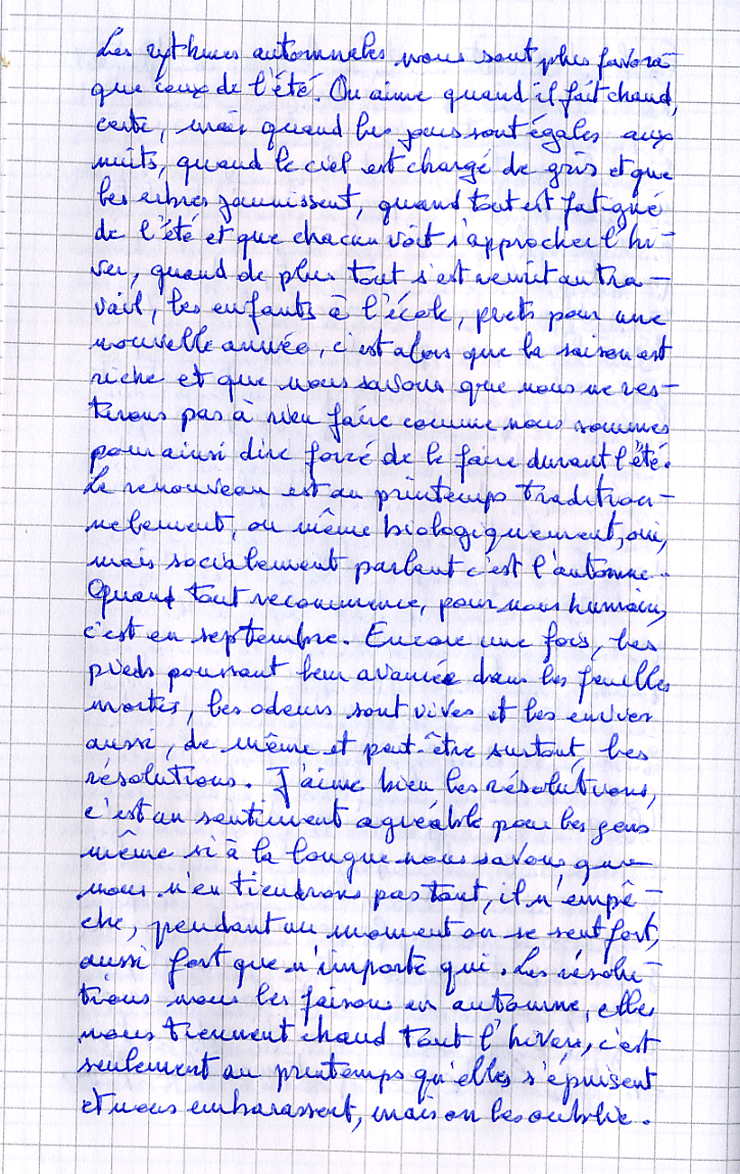 Les rythmes automnales nous sont plus favora-
que ceux de l'été. On aime quand il fait chaud,
certe, mais quand les jours sont égales aux
nuits, quand le ciel est chargé de gris et que
les arbres jaunissent, quand tout est fatigué
de l'été et que chacun voit s'approcher l'hi-
ver, quand de plus tout s'est remit au tra-
vail, les enfants à l'école, prets pour une
nouvelle année, c'est alors que la saison est
riche et que nous savons que nous ne res-
terons pas à rien faire comme nous sommes
pour ainsi dire forcé de le faire durant l'été.
Le renouveau est au printemps traditon-
nelement, ou même biologiquement, oui,
mais socialement parlant c'est l'automne.
Quand tout recommence, pour nous humains,
c'est en septembre. Encore une fois, les
pieds poursant leur avancée dans les feuilles
mortes, les odeurs sont vives et les envies
aussi, de même et peut-être surtout, les
résolutions. J'aime bien les résolutions,
c'est un sentiment agréable pour les gens
même si à la longue nous savons que
nous n'en tiendrons pas tant, il n'empê-
che, pendant un moment on se sent fort,
aussi fort que n'importe qui. Les résolu-
tions nous les faisons en automne, elles
nous tiennent chaud tout l'hivers, c'est
seulement au printemps qu'elles s'épuisent
et nous embarassent, mais on les oublie.